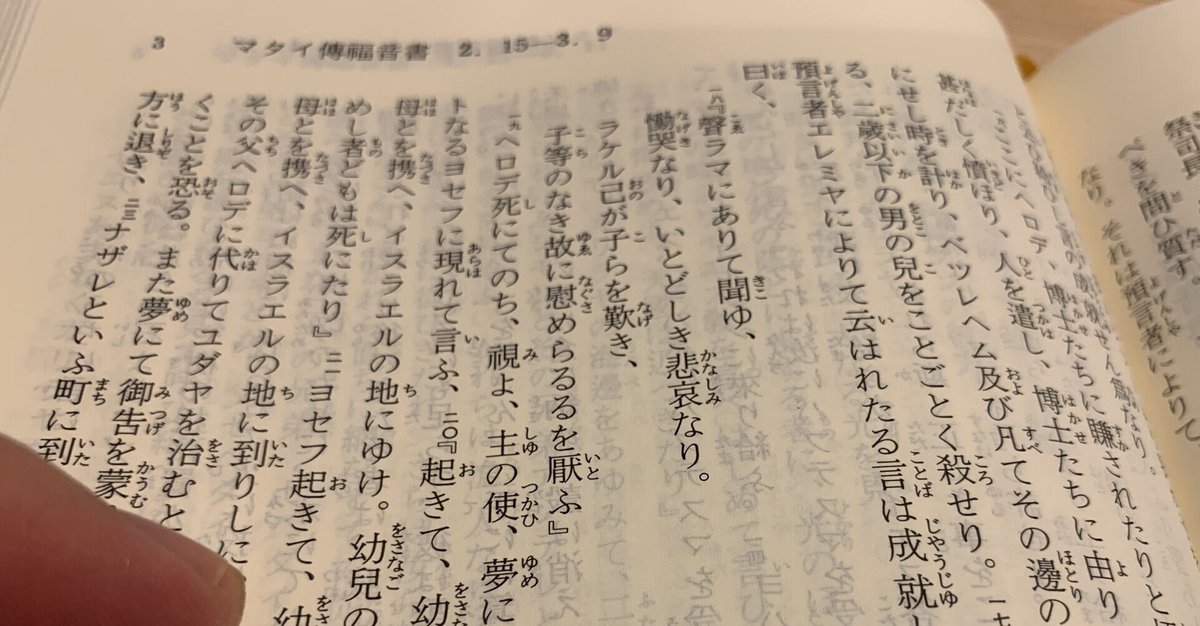 3 マタイ傳福音書 2. 15—3. 9
祭司長
べきを問ひ質す。
なり。それは預言者によりて
せん爲なり。
ここにヘロデ、博士たちに賺されたりと
甚だしく憤ほり、人を遣し、博士たちに由り
にせし時を計り、ベツレヘム及び凡てその邊の
る、二歳以下の男の兒をことごとく殺せり。一七
預言者エレミヤによりて云はれたる言は成就し
曰く、
一八『聲ラマにありて聞ゆ、
慟哭なり、いとどしき悲哀なり。
ラケル己が子らを歎き、
子等のなき故に慰めらるるを厭ふ』
一九ヘロデ死にてのち、視よ、主の使、夢に
トなるヨセフに現れて言ふ、二〇『起きて、幼
母とを携へ、イスラエルの地にゆけ。幼兒の
めし者どもは死にたり』二一ヨセフ起きて、幼
母とを携へ、イスラエルの地に到りしに
その父ヘロデに代りてユダヤを治むと
くことを恐る。また夢にて御告を蒙
方に退き、二三ナザレといふ町に到